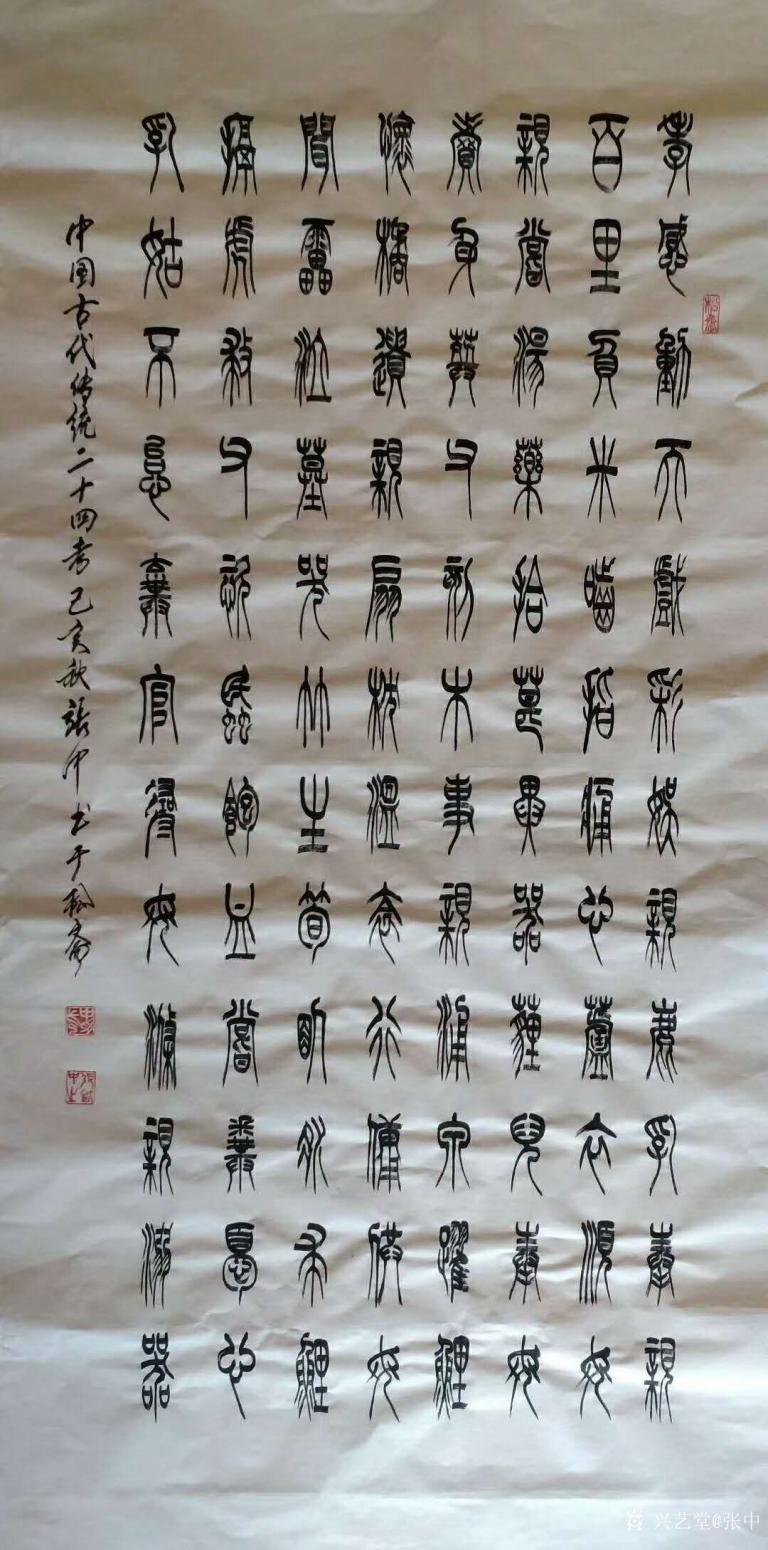 孝感動天戲彩娛親鹿乳奉親
百里負米嚙指痛心蘆衣順母
親嘗湯藥拾葚異器薶兒奉母
賣身葬父刻木事親涌泉躍鯉
懷橘遺親扇枕溫衾行傭供母
聞雷泣墓哭竹生筍卧冰求鯉
搤虎救父恣蚊飽血嘗糞憂心
乳姑不怠棄官尋母滌親溺器
中国古代传统二十四孝己亥秋張中书于松斋
兴艺堂@张中